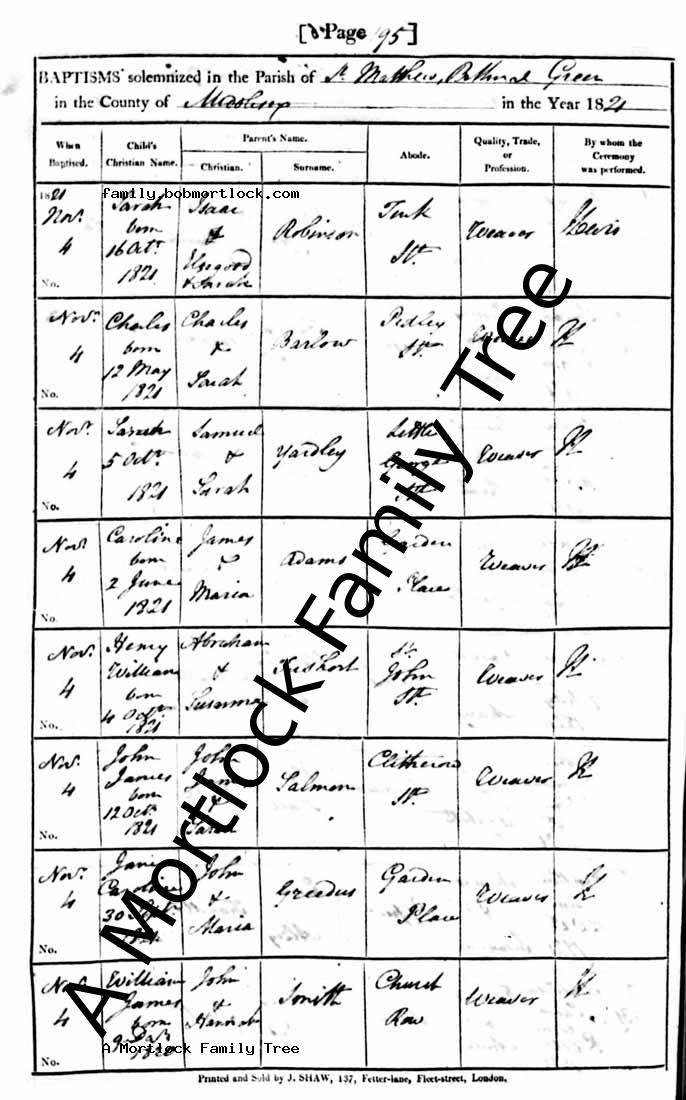 [Page 95]
BAPTISMS solemnized in the Parish of St. Matthew, Bethnal Green
in the County of Middlesex in the Year 1821
When Baptised. Child's Christian Name. Parent's Name. Christian. Surname. Abode. Quality, Trade, or Profession. By whom the Ceremony was performed.
family.bobmortlock.com
1821
Nov.r 4 Sarah born 16 Oct.r 1821 Isaac & Sarah Robinson St. Weaver
No.
Nov.r 4 Charles born 12 May 1821 Charles & Sarah Barlow Pedley St. Weaver
No.
Nov.r 4 Sarah 5 Oct.r 1821 Samuel & Sarah Yardley Little George St. Weaver
No.
Nov.r 4 Caroline born 2 June 1821 James & Maria Adams Garden Place Weaver
No.
Nov.r 4 Henry William born 4 Oct.r 1821 Abraham & Susanna St. John St. Weaver
No.
Nov.r 4 John James born 12 Oct.r 1821 John James & Sarah Salmon Clitherow St. Weaver
No.
Nov.r 4 Jane Caroline 30 1821 John & Maria Garden Place Weaver
No.
Nov.r 4 William James born John & Hannah Smith Church Row Weaver
No.
A Mortlock Family Tree
A Mortlock Family Tree
Printed and Sold by J. SHAW, 137, Fetter-lane, Fleet-street, London.